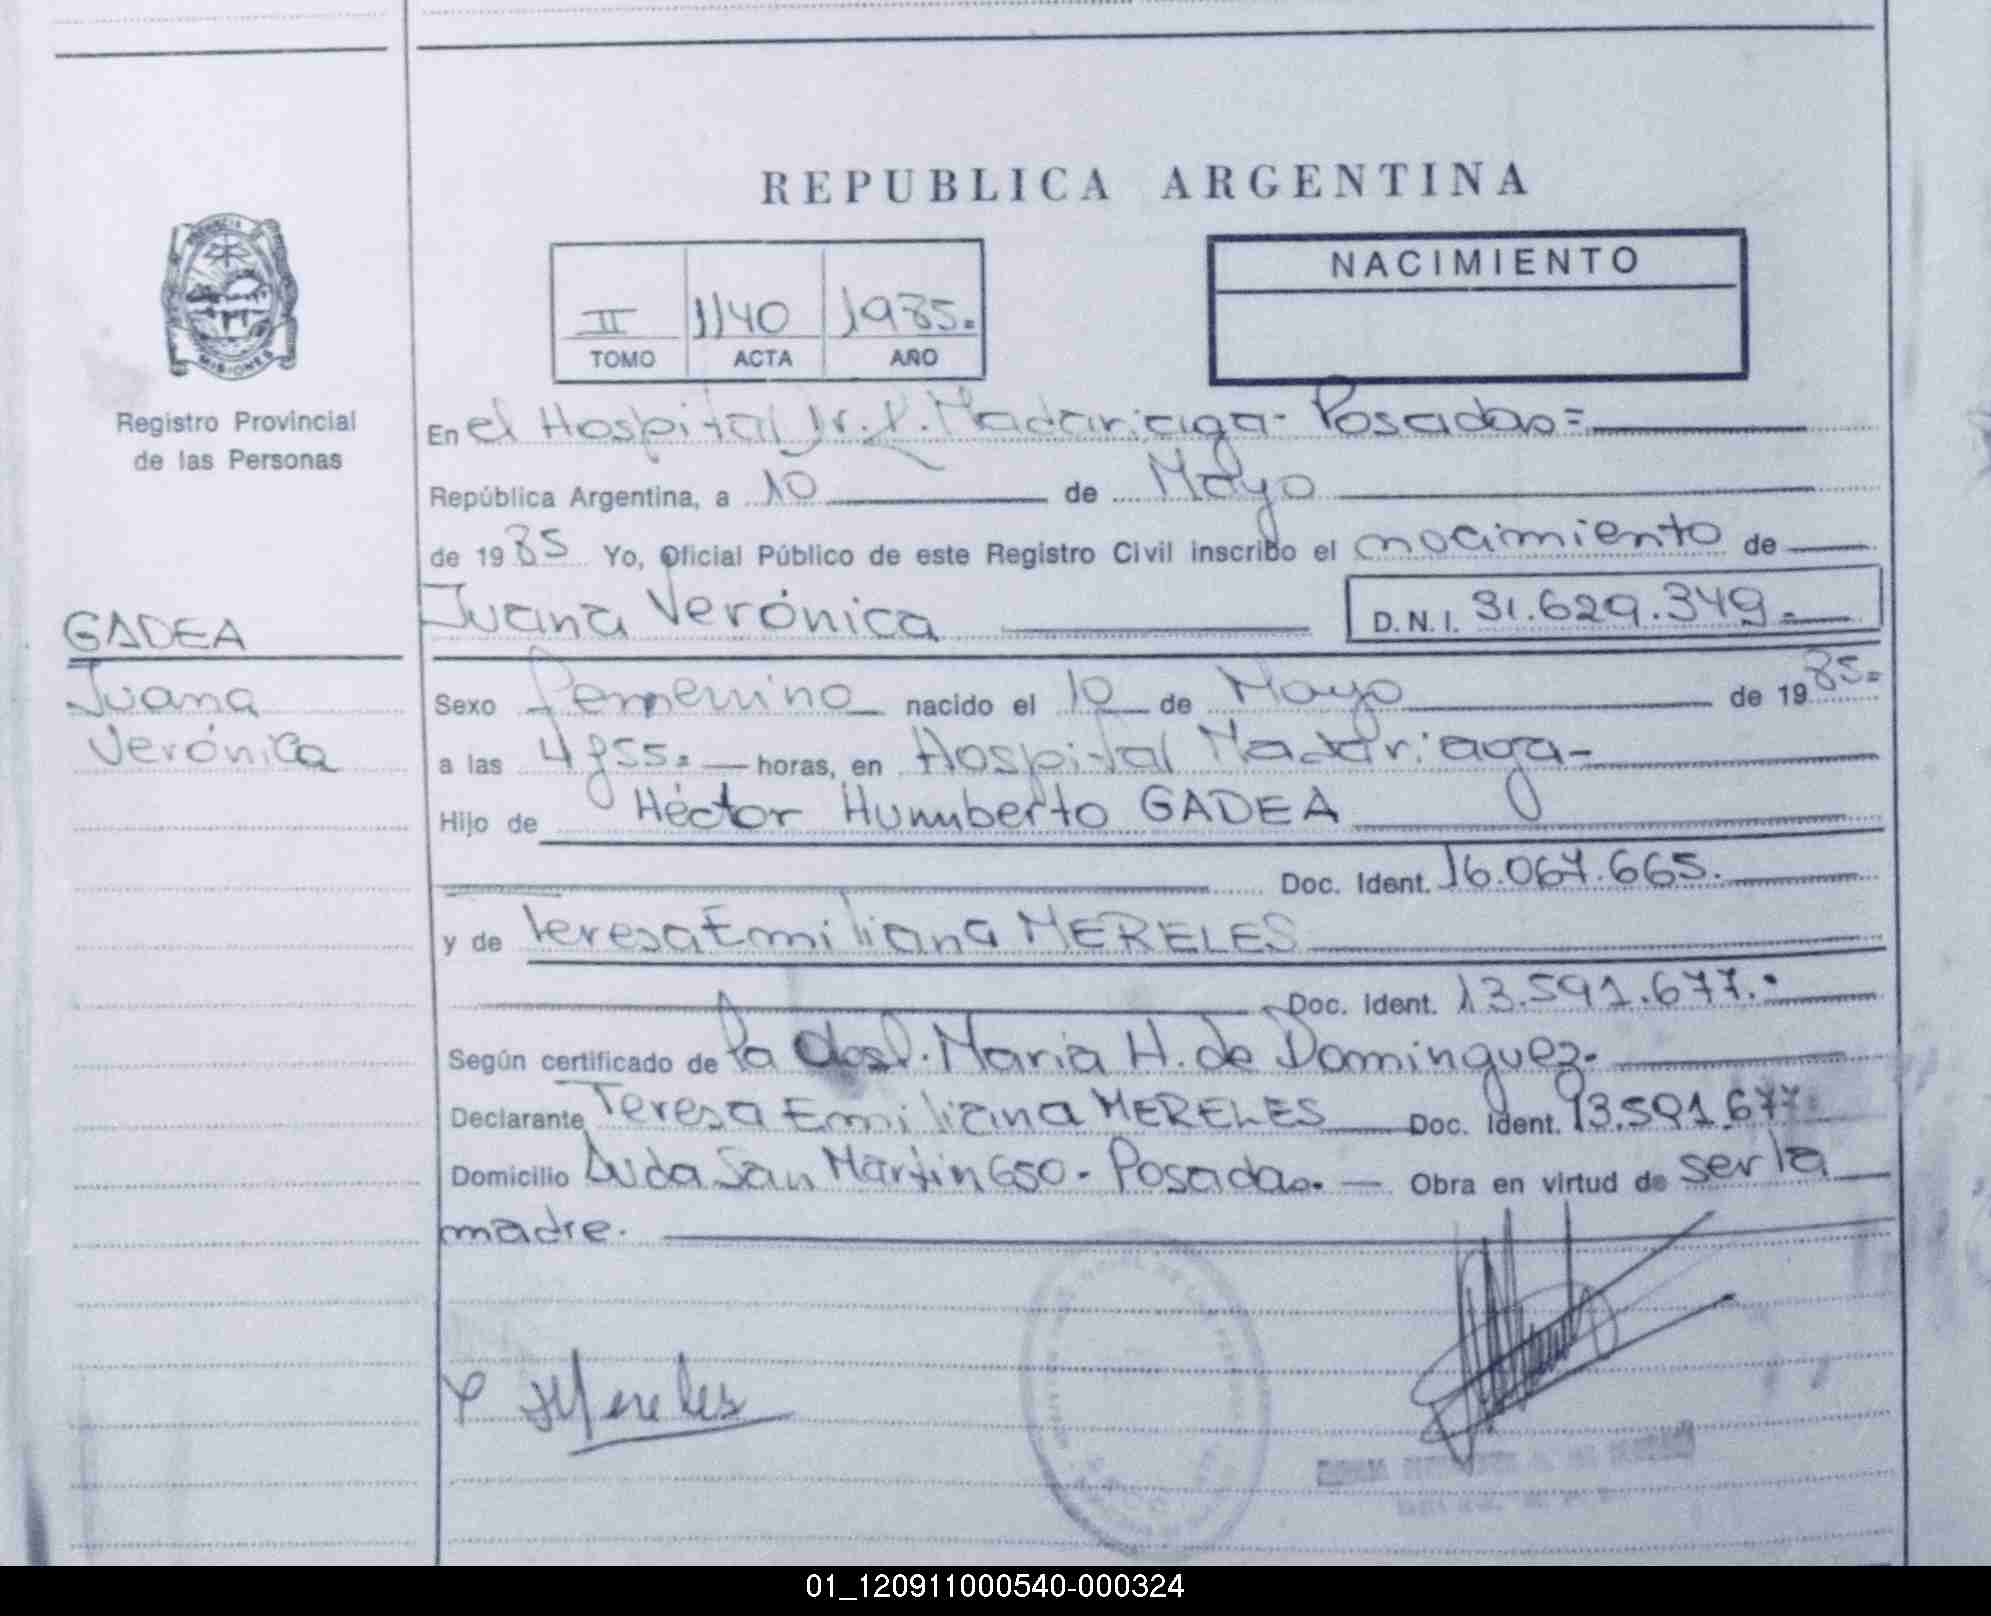 REPUBLICA ARGENTINA
PROVINCIA
MISIONES
Registro Provincial
de las Personas
II 1140 1985.
TOMO ACTA AÑO
NACIMIENTO
En el Hospital Dr. R. Madariaga - Posadas=
República Argentina, a 10 de Mayo
de 1985 Yo, Oficial Público de este Registro Civil inscribo el nacimiento de
Juana Verónica D.N.I. 31.629.349.-
GADEA
Juana
Verónica
Sexo femenino nacido el 10 de Mayo de 1985=
a las 4 y 55= horas, en Hospital Madariaga-
Hijo de Héctor Humberto GADEA
Doc. Ident. 16.067.665.
y de Teresa Emiliana MERELES
Doc. Ident. 13.591.677.-
Según certificado de la María H. de Dominguez.
Declarante Teresa Emiliana MERELES Doc. Ident. 13.591.677
Domicilio Avda San Martín 650 - Posadas. Obra en virtud de ser la
madre.
Mereles
01_120911000540-000324